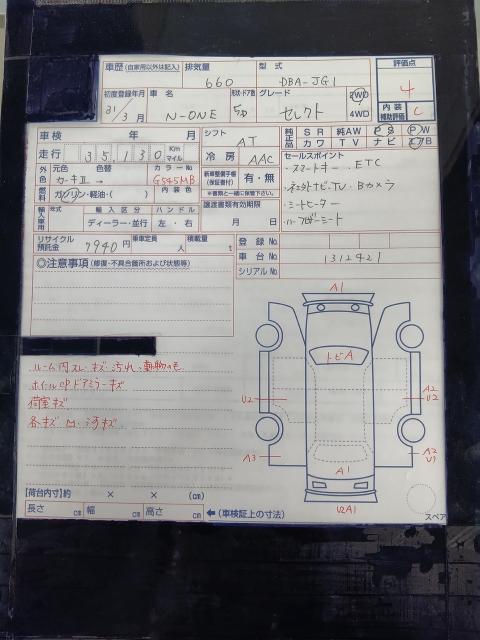 車歴 (自家用以外は記入) 排気量 型式 評価点
660 DBA-JG1 4
初度登録年月 車名 形状・ドア数 グレード 2WD 内装 補助評価
31年3月 N-ONE 5D セレクト 4WD C
車検 年 月 シフト AT 純正品 SR 純AW PS PW
走行 35,130 Km マイル 冷房 AAC カワ TV ナビ エアB
外色 元色 色替 カラーNo. 新車整備手帳 (保証書付) 有・無 セールスポイント
カーキII → G545MB ※書類と一緒に保管下さい。 ・スマートキー ETC
燃料 ガソリン・軽油・( ) 内装色 譲渡書類有効期限 ・社外ナビ.TV.Bカメラ
輸入車用 年式 輸入区分 ハンドル 月 日 ・シートヒーター
ディーラー・並行 左・右 ・ハーフレザーシート
リサイクル預託金 7940円 乗車定員 人 積載量 t 登録No.
車台No. 1312421
◎注意事項 (修復・不具合箇所および状態等) シリアルNo.
ルーム内スレ・キズ・汚れ
ホイルCPドアミラーキズ
荷室キズ
各キズ凹
A1
トビA
U2
A2
U2
A3
A1
A2
U1
U2A1
【荷台内寸】約 × × (cm)
長さ cm 幅 cm 高さ cm ←(車検証上の寸法)
スペア